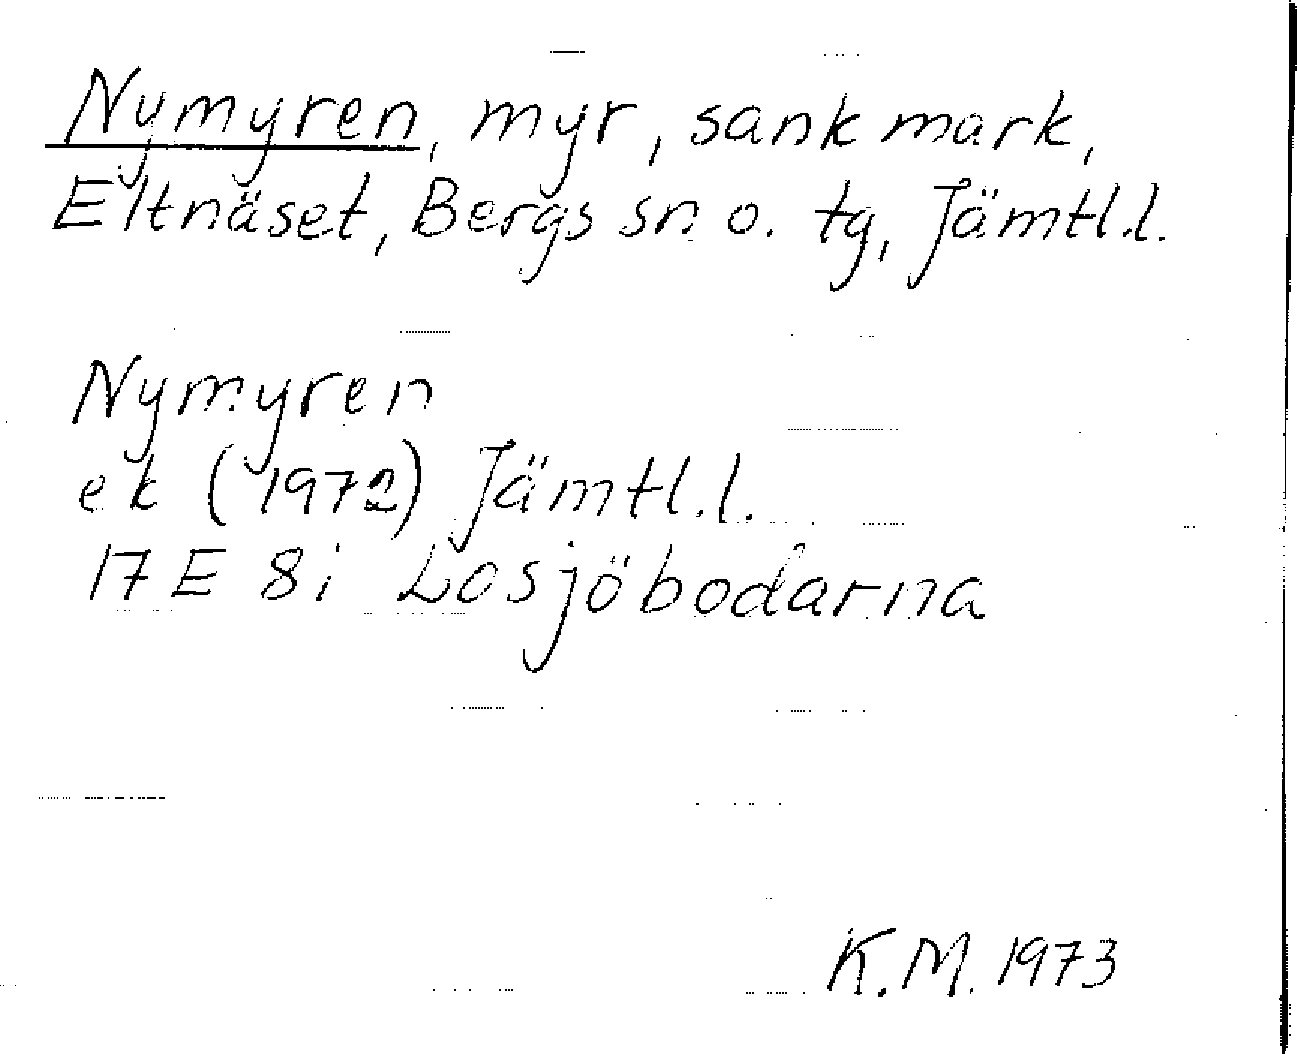 Nymyren, myr, sank mark,
Eltnäset, Bergs sn o. tg, Jämtl.l.
Nymyren
ek (1972) Jämtl.l.
17E 8i Losjöbodarna
K.M. 1973